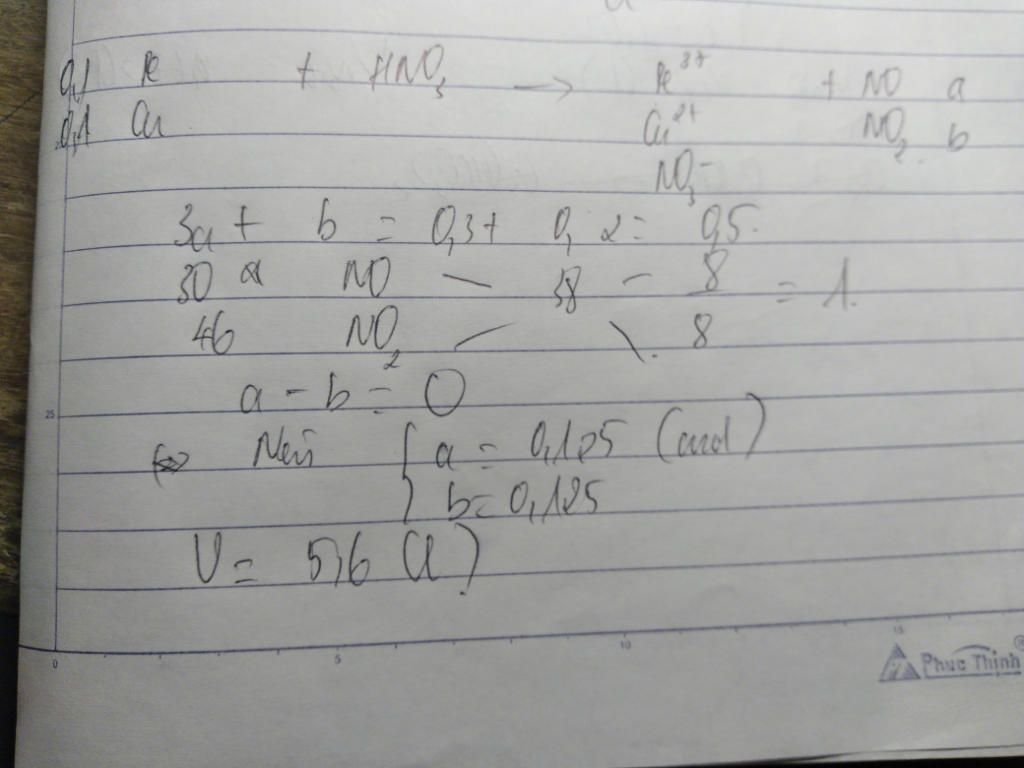 0,1 Fe + HNO3 → Fe3+ + NO a
0,1 Cu Cu2+ NO2 b
NO3-
3a + b = 0,3 + 0,2 = 0,5.
30 NO 38 8 = 1.
46 NO2 8
a - b = 0
Nên { a = 0,125 (mol)
b = 0,125
V = 5,6 (l)
25
0 5 10 15
Phuc Thinh